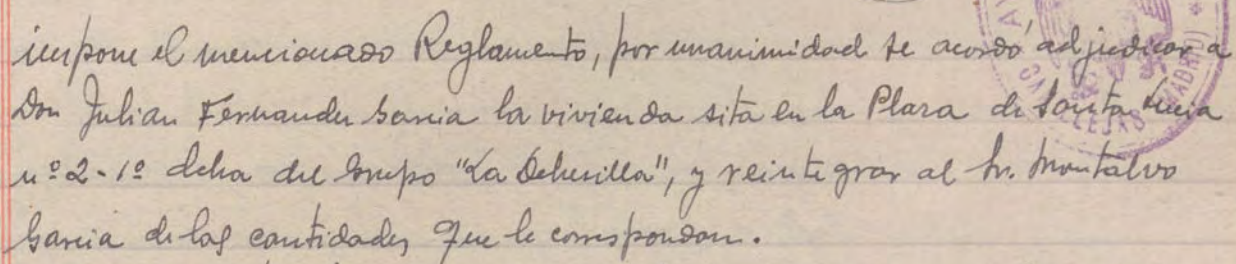 impone el mencionado Reglamento, por unanimidad se acordó adjudicar a
Don Julian Fernandez Garcia la vivienda sita en la Plaza de Santa Lucia
nº 2-1º dcha del Grupo "La Dehesilla", y reintegrar al Sr. Montalvo
Garcia de las cantidades que le correspondan.